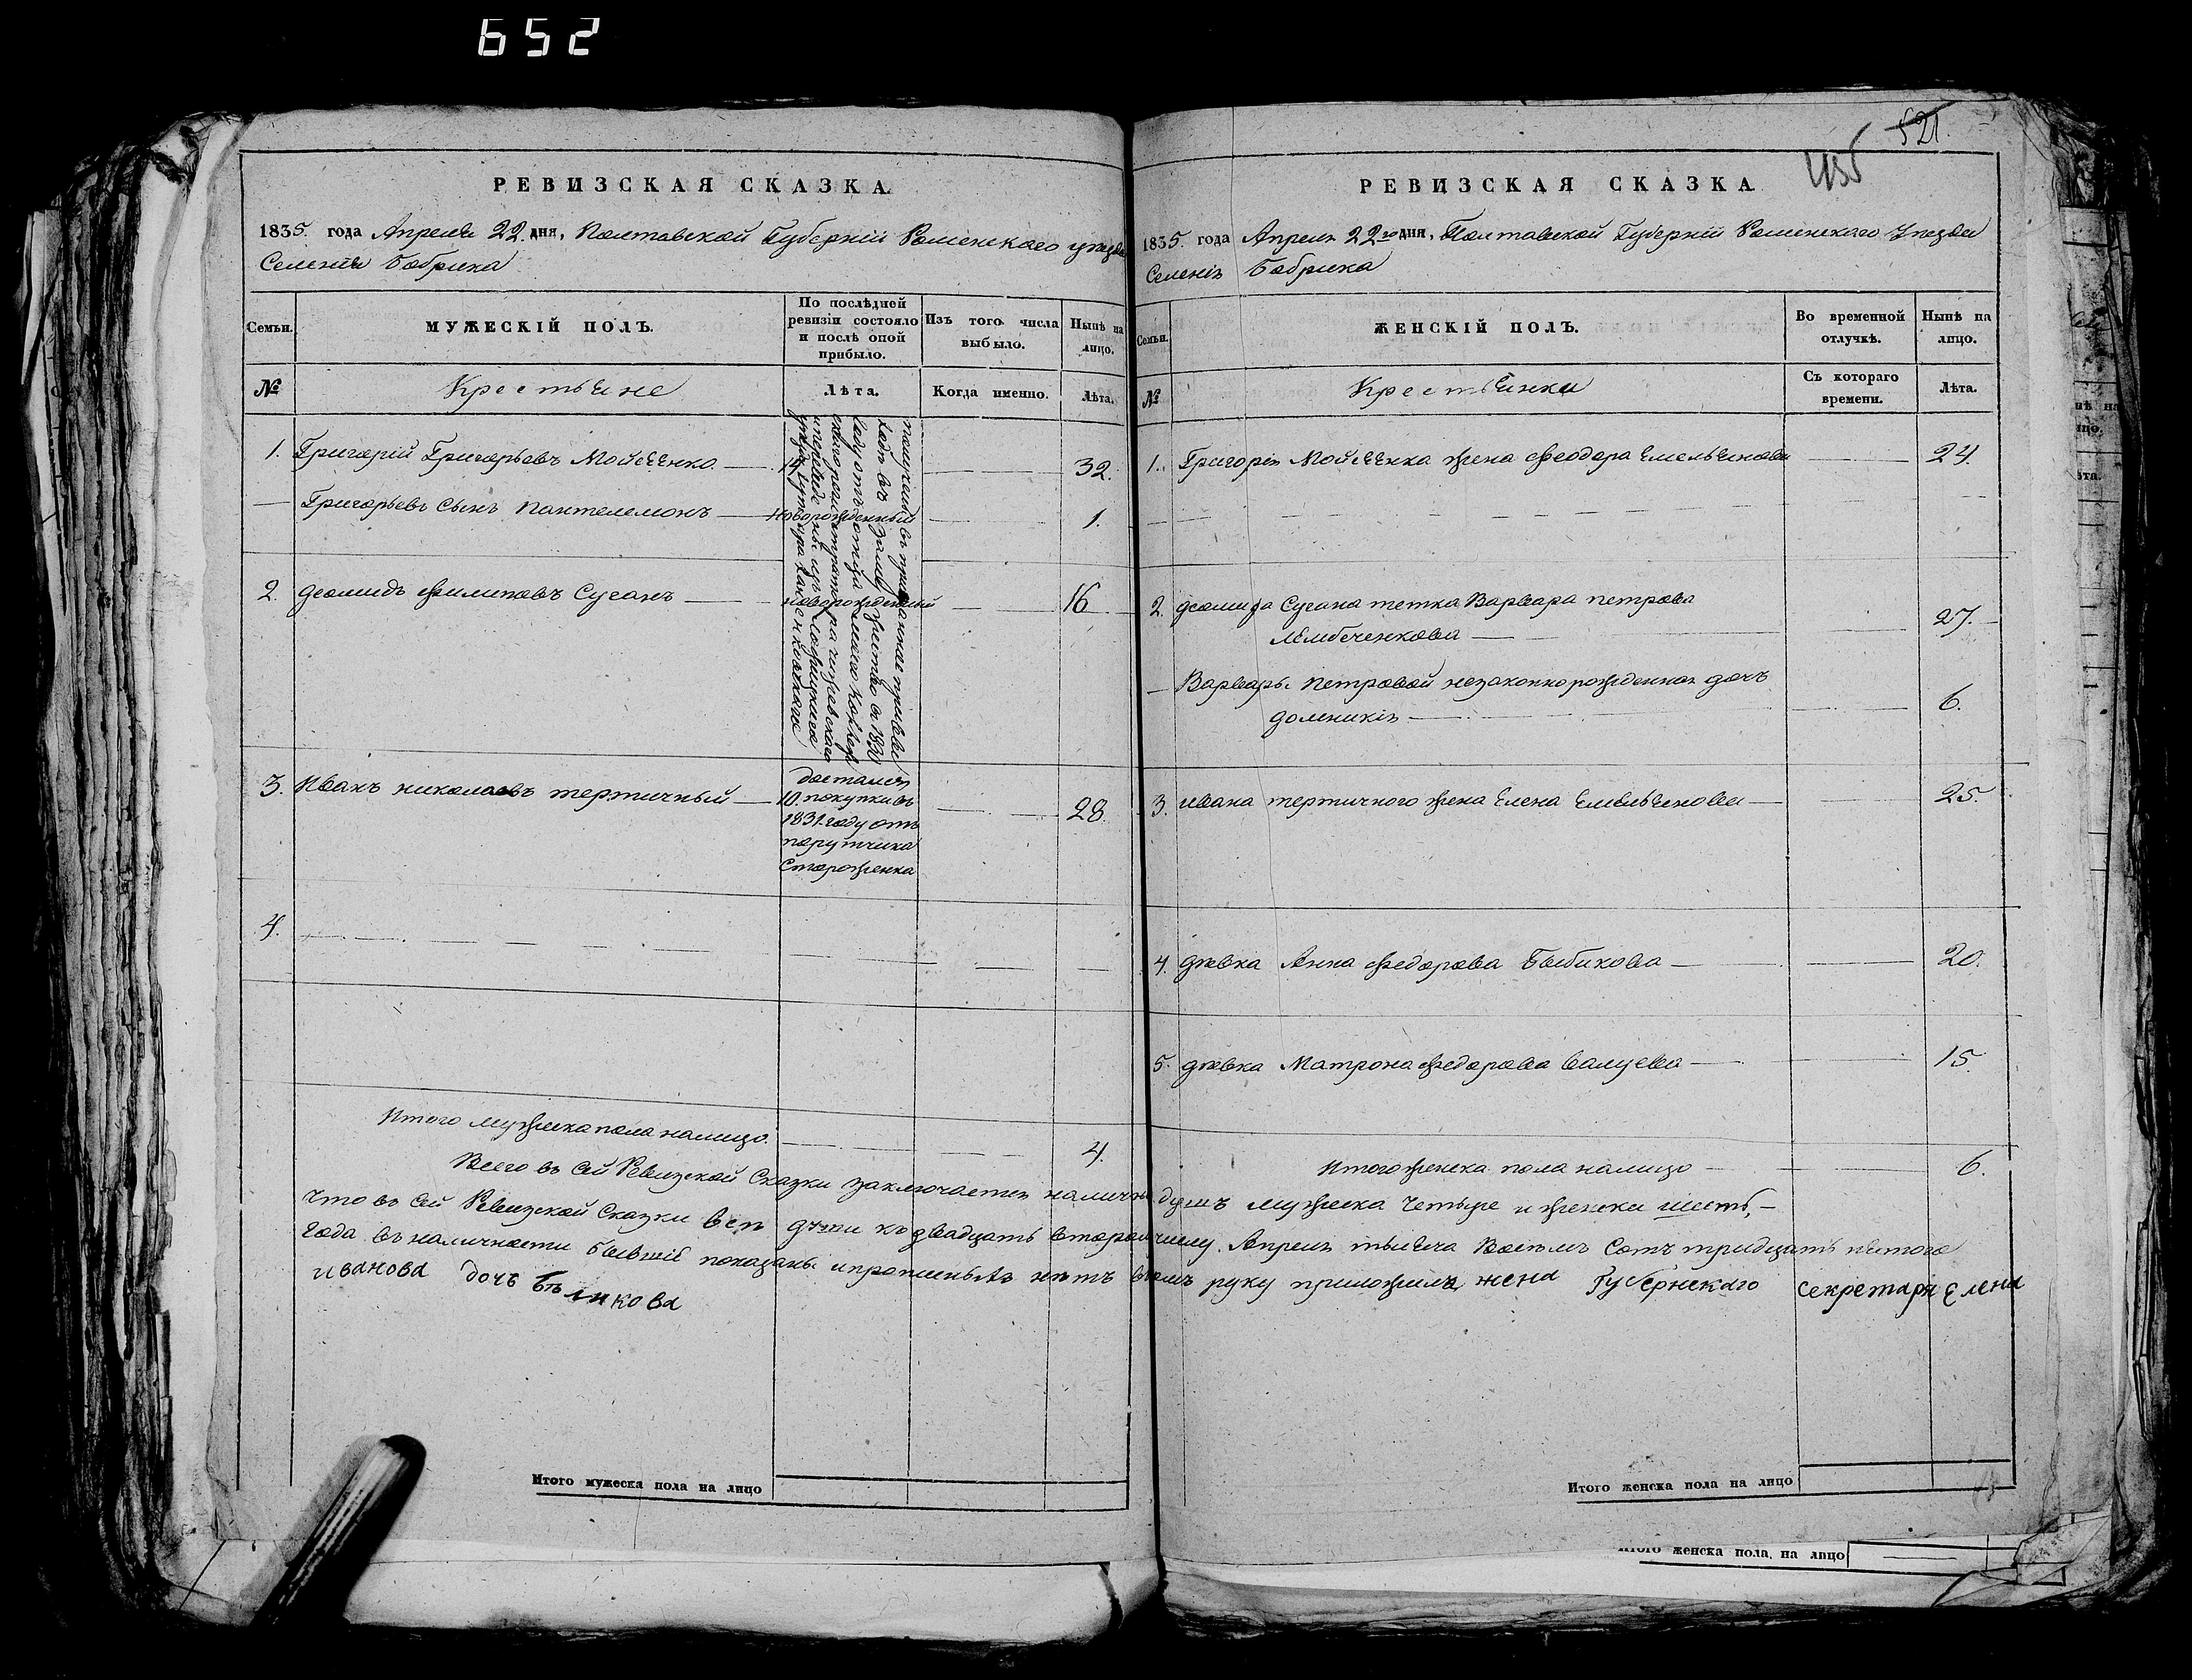 652
521.
455
РЕВИЗСКАЯ СКАЗКА.
1835. года Апреля 22. дня, Полтавской Губерніи Роменскаго уѣзда
Селенія Бобрика
Семьи.
МУЖЕСКІЙ ПОЛЪ.
По послѣдней
ревизіи состояло
и послѣ оной
прибыло.
Изъ того числа
выбыло.
Нынѣ на
лицо.
№
Крестьяне
Лѣта.
Когда именно.
Лѣта.
1. Григорій Григорьевъ Мойсѣенко 14 32.
Григорьевъ Сынъ Пантелемонъ новорожденный 1.
2. Деомидъ Филиповъ Суганъ новорожденный 16
3. Иванъ николаевъ тертичный
достался
10. покупки въ
1831. году отъ
порутчика
Стороженка
28.
4.
Итого мужеска пола налицо. 4.
РЕВИЗСКАЯ СКАЗКА
1835. года Апреля 22го дня, Полтавской Губерніи Роменскаго Уѣзда
Селенія Бобрика
Семьи.
ЖЕНСКІЙ ПОЛЪ.
Во временной
отлучкѣ.
Нынѣ на
лицо.
№
Крестьянки
Съ котораго
времени.
Лѣта.
1. Григорія Мойсѣенка жена Феодора Емельянова 24.
2. Деомида Сугана тетка Варвара петрова
27.
Варвары Петровой незаконнорожденная дочь
6.
3. Ивана тертичного жена Елена Емельянова 25.
4. Дѣвка Анна Федорова Быбикова 20.
5. Дѣвка Матрона Федорова 15.
Итого женска пола налицо 6.
Всего въ сей Ревизской Сказки заключается налично душъ мужеска четыре и женска шесть,
что въ сей Ревизской Сказки всѣ души къ двадцать второму числу Апреля тысяча Восемъ Сотъ тридцать пятого
года въ наличности бывшіе показаны и прописныхъ нѣтъ въ томъ руку приложила жена Губернскаго Секретаря Елена
иванова дочь Бѣликова
Итого мужеска пола на лицо
Итого женска пола на лицо
Итого женска пола, на лицо